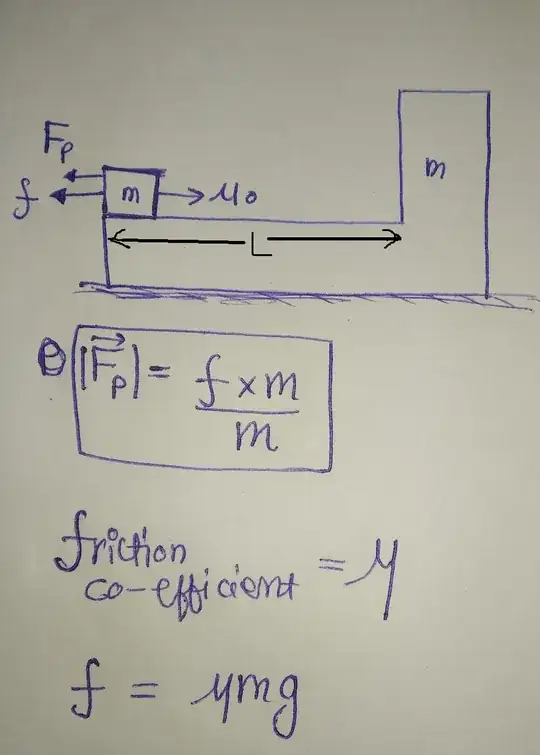 Fp
f m μ0
m
L
|Fp| = f × m
m
friction
co-efficient = μ
f = μmg